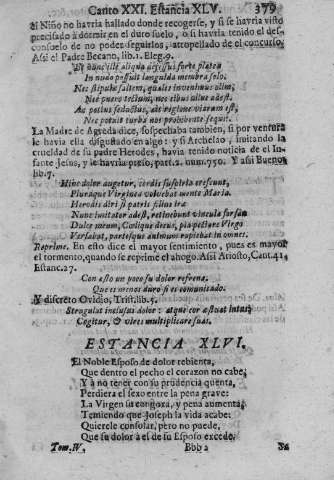 Canto XXI. Estancia XLV. 379
el Niño no havria hallado donde recogerse, y si se havria visto
precisado à dormir en el duro suelo, o si havria tenido el des-
consuelo de no poder seguirlos, atropellado de el concurso.
Assi el Padre Becano, lib.1. Eleg.9.
Et nunc ille aliqua defessus forte platea
In nudo possuit languida membra solo.
Nec stipulæ saltem, quales invenimus ulim,
Nec puero tectum, nec cibus ullus adest.
Ac potius seductus, ab
Nec potuit turba nos prohibente sequit.
La Madre de Agreda dice, sospechaba tambien, si por ventura
le havia ella disgustado en algo: y si Archelao, imitando la
crueldad de su padre Herodes, havia tenido noticia de el In-
fante Jesus, y le havria preso, part.2. num.750. Y assi Bueno
lib.7.
Hinc dolor augetur, cordis suspiria crescunt,
Pluraque Virginea volvebat mente Maria.
Herodis diri si patris filius iræ
Nunc imitator adest, retinebunt vincula fursan
Dulce meum, Cælique decus, pia pectore Virgo
Versabat, portesque animum rapiebat in omnes.
Reprime. En esto dice el mayor sentimiento, pues es mayor
el tormento, quando se reprime el ahogo. Assi Ariosto, Cant.41,
Estanc.27.
Con asto un poco su dolor refrena.
Que es menos duro si es comunicado.
Y discreto Ovidio, Trist.lib.5.
Strogulat inclusus dolor: atque cor æstuat intus;
Cogitur, & vires multiplicare suas.
ESTANCIA XLVI.
El Noble Esposo de dolor rebienta,
Que dentro el pecho el corazon no cabe,
Y à no tener con su prudencia quenta,
Perdiera el sexo entre la pena grave:
La Virgen se congoxa, y pena aumenta,
Temiendo que Joseph la vida acabe:
Quierele consolar, pero no puede,
Que su dolor à el de su Esposo excede.
Tom.IV. Bbb 2 Sa